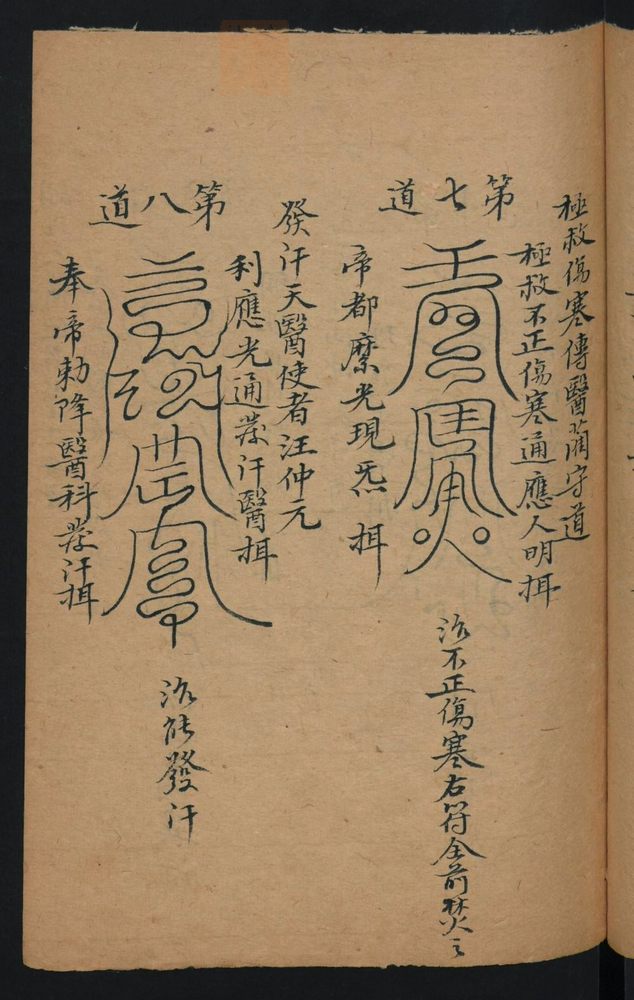 極救傷寒傳醫藺守道
第七道
極救不正傷寒通應人明揖
帝都縻光現炁揖
治不正傷寒右符仝前焚之
發汗天醫使者汪仲元
第八道
利應光通發汗醫揖
奉帝勅降醫科發汗揖
治能發汗